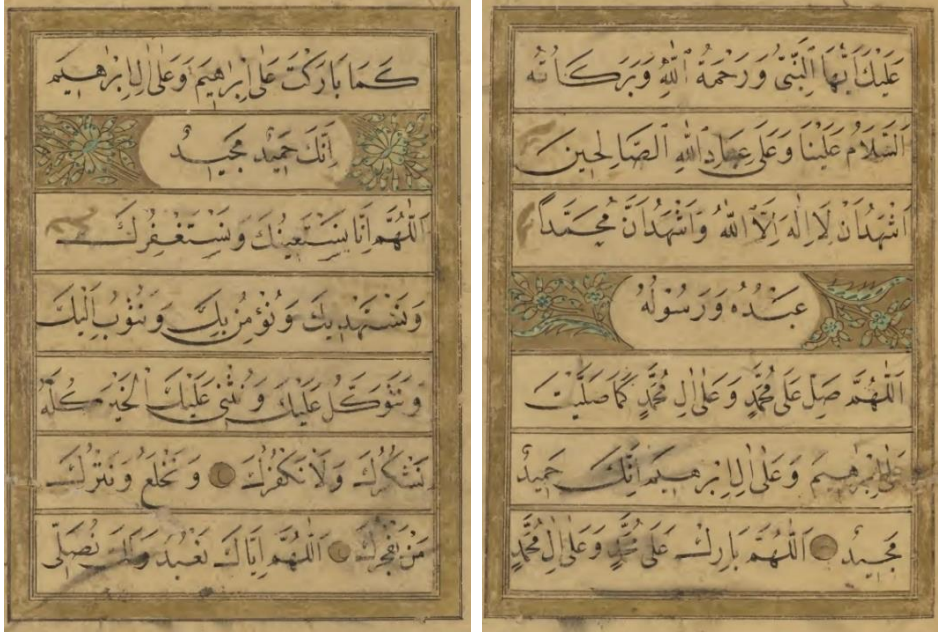 عَلَيْكَ اَيُّهَا النَّبِىُّ وَرَحْمَةُ اللّٰهِ وَبَرَكَاتُهُ
اَلسَّلَامُ عَلَيْنَا وَعَلَى عِبَادِ اللّٰهِ الصَّالِحِينَ
اَشْهَدُ اَنْ لَا اِلٰهَ اِلَّا اللّٰهُ وَاَشْهَدُ اَنَّ مُحَمَّدًا
عَبْدُهُ وَرَسُولُهُ
اَللّٰهُمَّ صَلِّ عَلٰى مُحَمَّدٍ وَعَلٰى اٰلِ مُحَمَّدٍ كَمَا صَلَّيْتَ
عَلٰى اِبْرٰهِيمَ وَعَلٰى اٰلِ اِبْرٰهِيمَ اِنَّكَ حَمِيدٌ
مَجِيدٌ اَللّٰهُمَّ بَارِكْ عَلٰى مُحَمَّدٍ وَعَلٰى اٰلِ مُحَمَّدٍ
كَمَا بَارَكْتَ عَلٰى اِبْرٰهِيمَ وَعَلٰى اٰلِ اِبْرٰهِيمَ
اِنَّكَ حَمِيدٌ مَجِيدٌ
اَللّٰهُمَّ اِنَّا نَسْتَعِينُكَ وَنَسْتَغْفِرُكَ
وَنَسْتَهْدِيكَ وَنُؤْمِنُ بِكَ وَنَتُوبُ اِلَيْكَ
وَنَتَوَكَّلُ عَلَيْكَ وَنُثْنِى عَلَيْكَ الْخَيْرَ كُلَّهُ
نَشْكُرُكَ وَلَا نَكْفُرُكَ وَنَخْلَعُ وَنَتْرُكُ
مَنْ يَفْجُرُكَ اَللّٰهُمَّ اِيَّاكَ نَعْبُدُ وَلَكَ نُصَلِّى